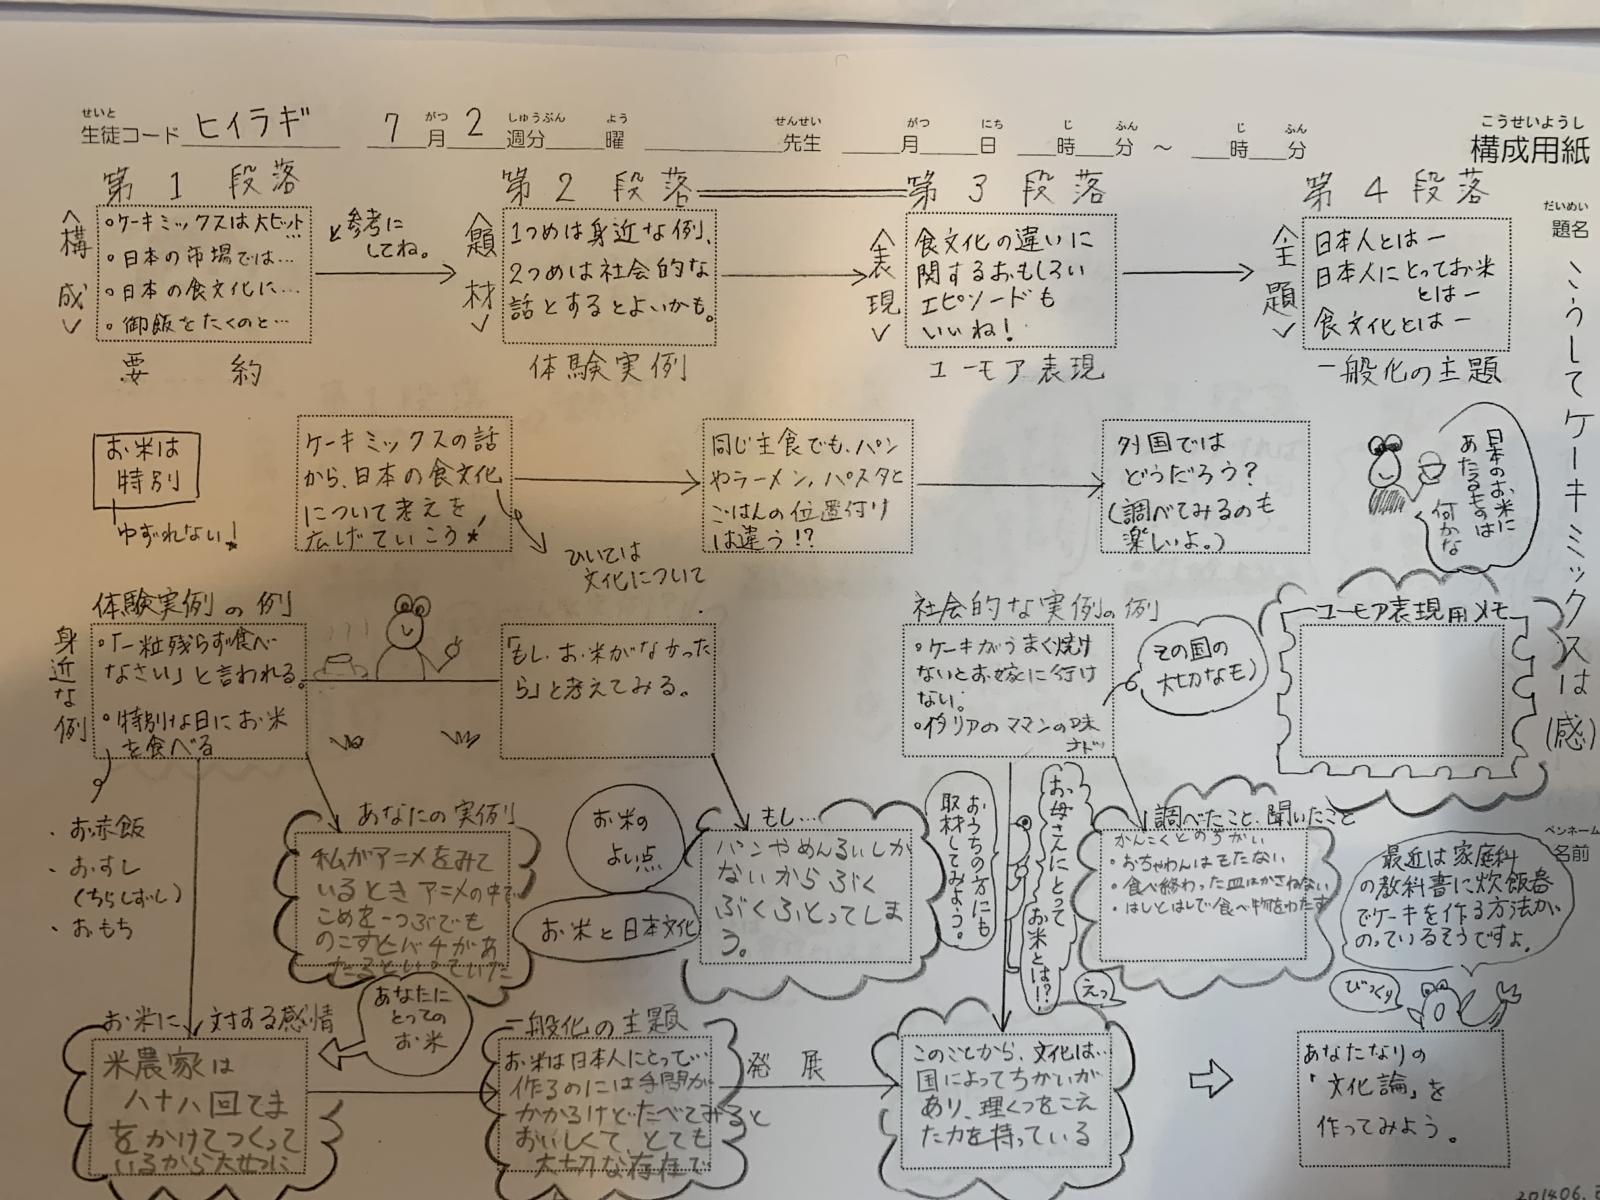 せいと
生徒コード ヒイラギ
がつ しゅうぶん よう
7月2週分 曜
せんせい
先生
がつ にち じ ふん じ ふん
月 日 時 分 ～ 時 分
こうせいようし
構成用紙
だいめい
題名
こうしてケーキミックスは(感)
ペンネーム
名前
第1段落
第2段落
第3段落
第4段落
〈構成〉
・ケーキミックスは大ヒット…
・日本の市場では…
・日本の食文化に…
・御飯をたくのと…
要約
を参考に
してね。
〈題材〉
1つめは身近な例、
2つめは社会的な
話とするとよいかも。
体験実例
〈表現〉
食文化の違いに
関するおもしろい
エピソードも
いいね！
ユーモア表現
〈主題〉
日本人とはー
日本人にとってお米
とはー
食文化とはー
一般化の主題
お米は
特別
ゆずれない！
ケーキミックスの話
から、日本の食文化
について考えを
広げていこう
ひいては
文化について
同じ主食でも、パン
やラーメン、パスタと
ごはんの位置付け
は違う!?
外国では
どうだろう？
(調べてみるのも
楽しいよ。)
日本のお米に
あたるものは
何かな
体験実例の例
身近な例
・「一粒残らず食べ
なさい」と言われる。
・特別な日にお米
を食べる
・お赤飯
・おすし
(ちらしずし)
・おもち
「もし、お米がなかった
ら」と考えてみる。
社会的な実例の例
・ケーキがうまく焼け
ないとお嫁に行け
ない。
・イタリアのママンの味
など
その国の
大切なモノ
ユーモア表現用メモ
あなたの実例
私がアニメをみて
いるときアニメの中で
こめを一つぶでも
のこすとバチがあ
たるといっていた
お米の
よい点
お米と日本文化
もし…
パンやめんるいしか
ないからぶく
ぶくふとってしま
う。
おうちの方にも
取材してみよう。
お母さんにとって
お米とは!?
えっ
調べたこと、聞いたこと
かんこくとのちがい
・おちゃわんはもたない
・食べ終わった皿はかさねない
・はしとはしで食べ物をわたす
最近は家庭科
の教科書に炊飯器
でケーキを作る方法が
のっているそうですよ。
びっくり
お米に対する感情
米農家は
八十八回てま
をかけてつくって
いるから大切に
あなたに
とっての
お米
一般化の主題
お米は日本人にとって…
作るのには手間が
かかるけど、たべてみると
おいしくて、とても
大切な存在で
発展
このことから、文化は…
国によってちがいが
あり、理くつをこえ
た力を持っている
あなたなりの
「文化論」を
作ってみよう。